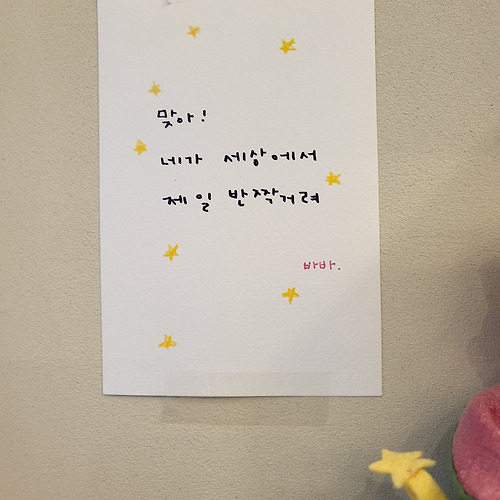 맞아!
네가 세상에서
제일 반짝거려
바바.